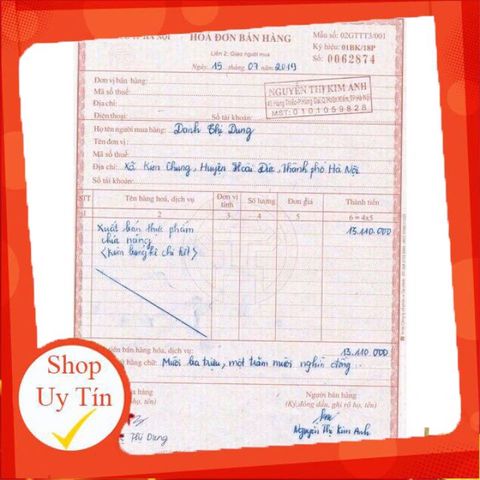 HÓA ĐƠN BÁN HÀNG
Mẫu số: 02GTTT3/001
Liên 2: Giao người mua
Ký hiệu: 01BK/18P
Ngày, 15 tháng 07 năm 2019
Số: 0062874
Đơn vị bán hàng:
Mã số thuế:
Địa chỉ:
Điện thoại: Số tài khoản:
NGUYỄN THỊ KIM ANH
MST: 0101059828
Họ tên người mua hàng: Danh Thị Dung
Tên đơn vị:
Mã số thuế:
Địa chỉ: Xã Kim Chung, Huyện Hoài Đức, Thành phố Hà Nội
Số tài khoản:
STT Tên hàng hoá, dịch vụ Đơn vị tính Số lượng Đơn giá Thành tiền
2 3 4 5 6 = 4x5
Xuất bán thực phẩm 13.110.000
chức năng
(Kèm bảng kê chi tiết)
tiền bán hàng hóa, dịch vụ: 13.110.000
bằng chữ: Mười ba triệu, một trăm mười nghìn đồng
hàng Người bán hàng
họ, tên) (Ký, đóng dấu, ghi rõ họ, tên)
Thị Dung Nguyễn Thị Kim Anh
Shop
Uy Tín